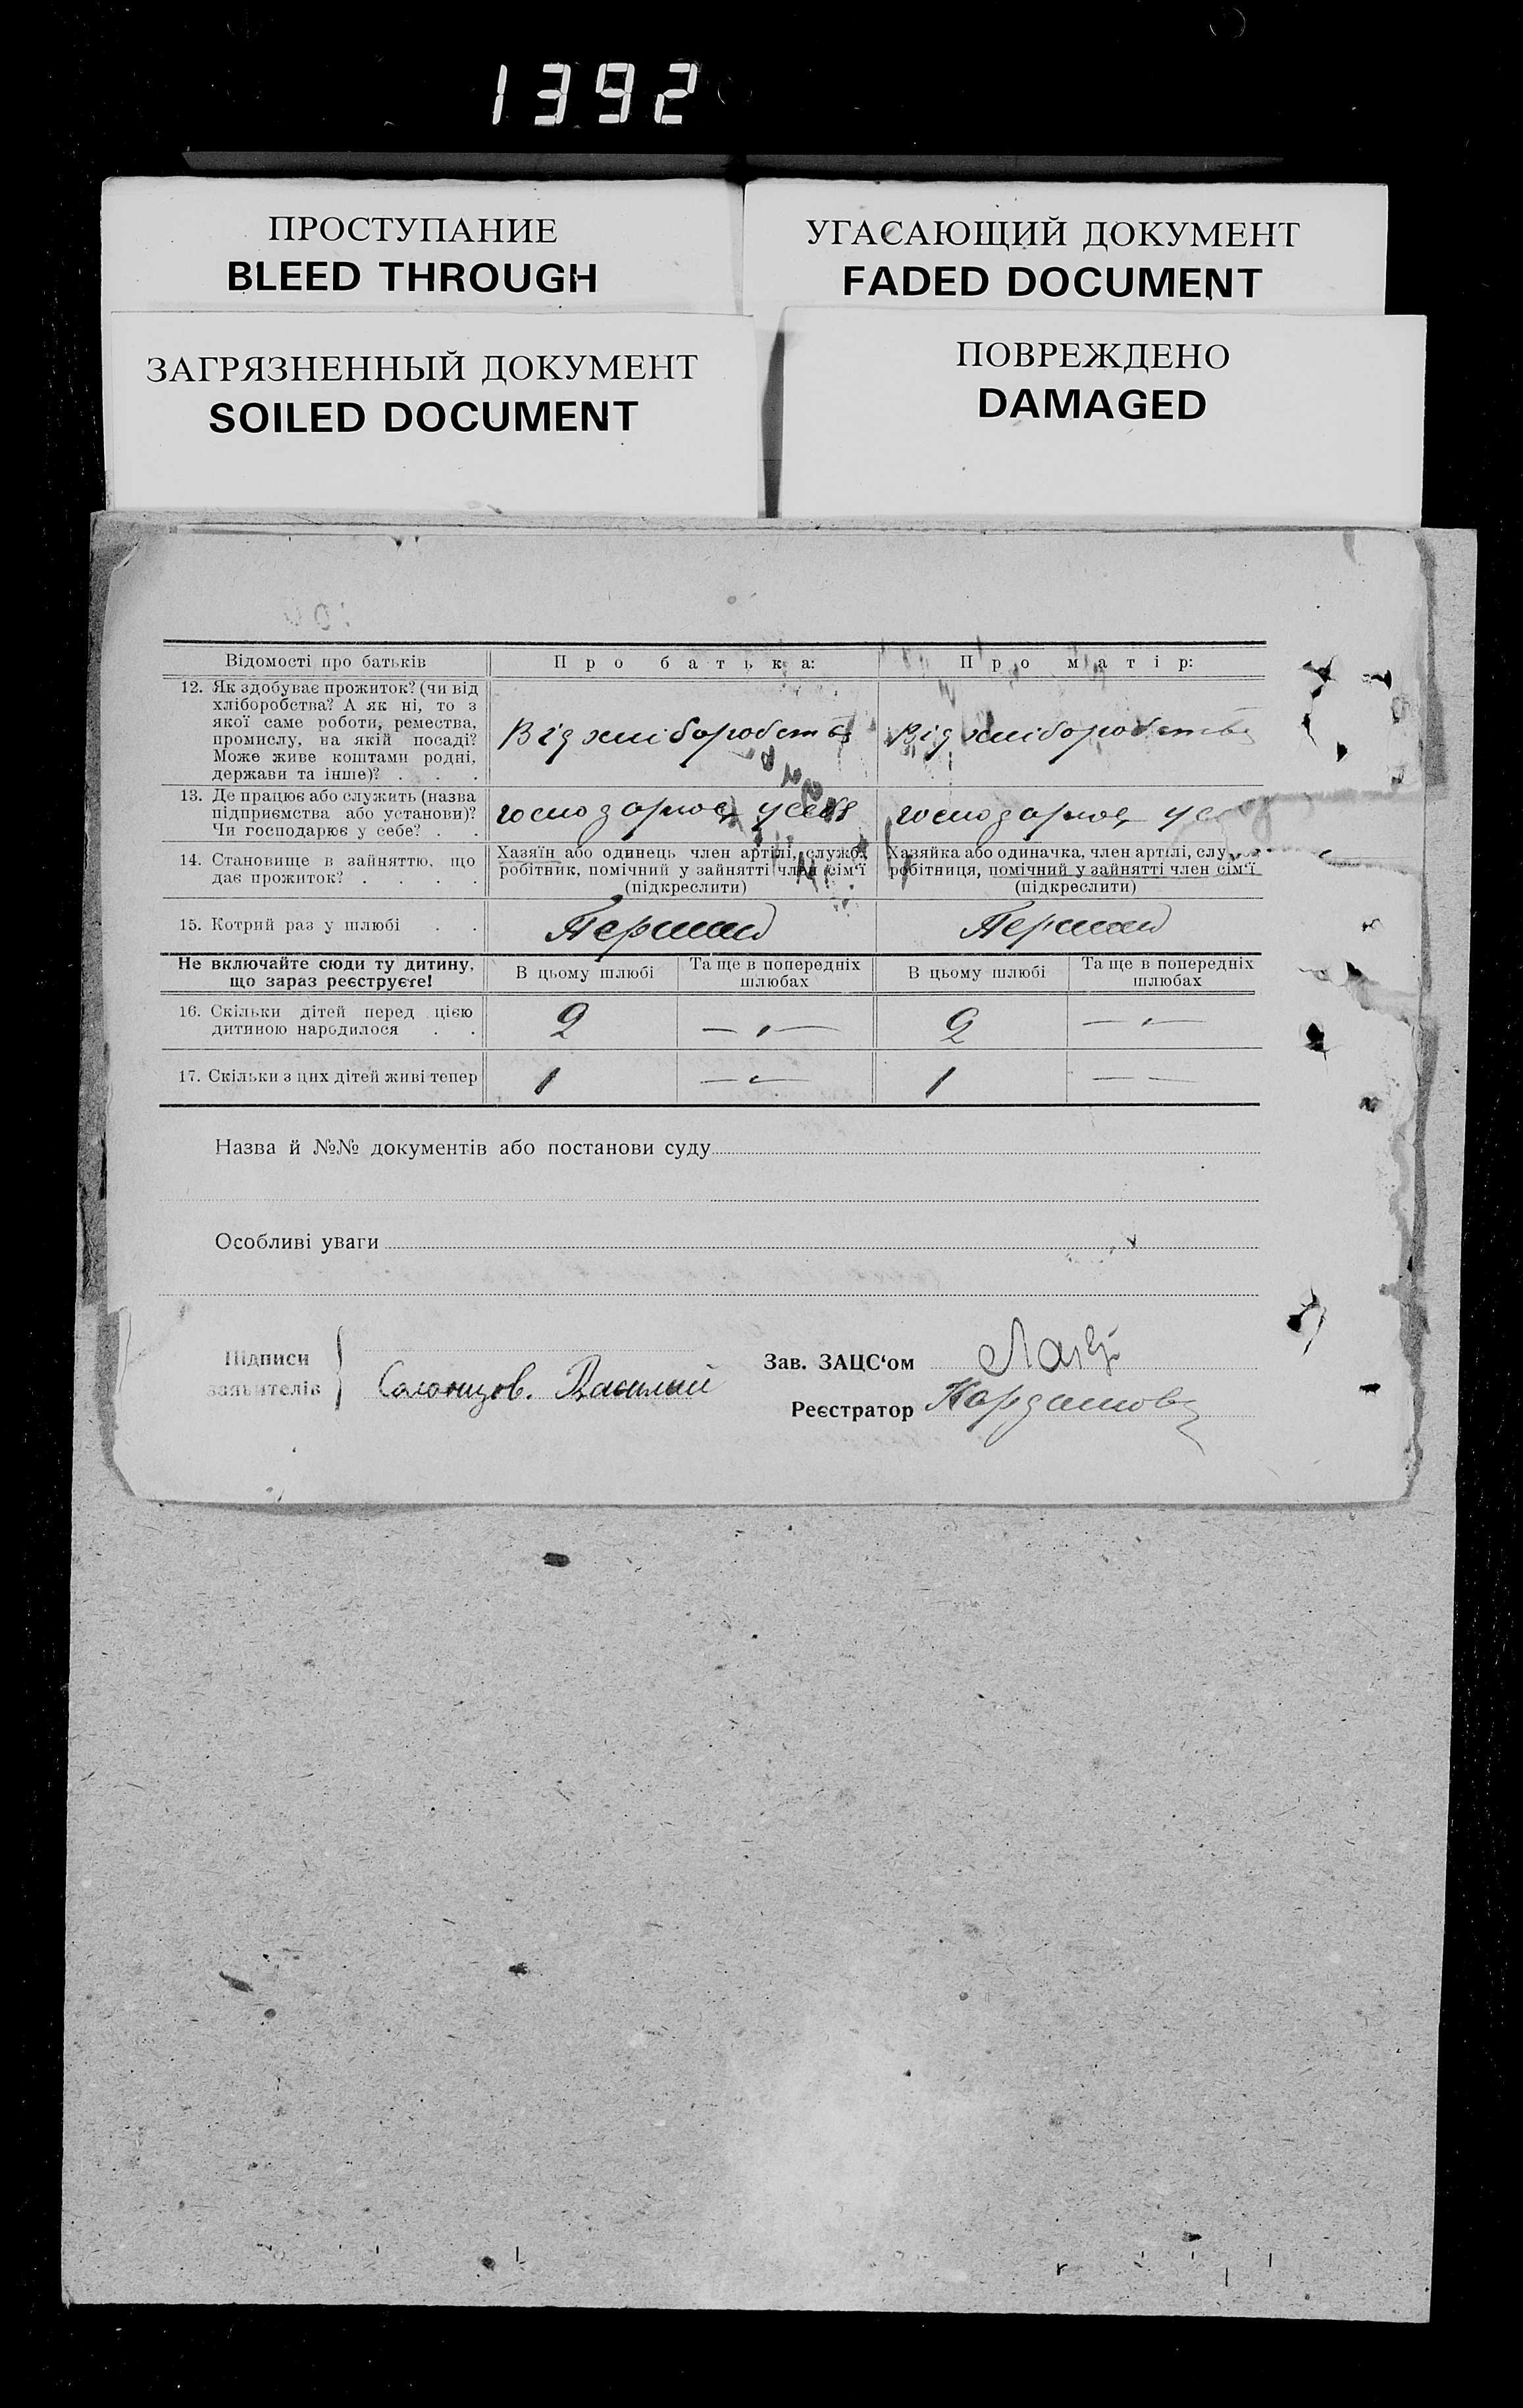 1392
ПРОСТУПАНИЕ
BLEED THROUGH
УГАСАЮЩИЙ ДОКУМЕНТ
FADED DOCUMENT
ЗАГРЯЗНЕННЫЙ ДОКУМЕНТ
SOILED DOCUMENT
ПОВРЕЖДЕНО
DAMAGED
Відомості про батьків
Про батька:
Про матір:
12. Як здобуває прожиток? (чи від
хліборобства? А як ні, то з
якої саме роботи, ремества,
промислу, на якій посаді?
Може живе коштами родні,
держави та інше)? . . .
Від хліборобства
Від хліборобства
13. Де працює або служить (назва
підприємства або установи)?
Чи господарює у себе? . .
господарює у себя
господарює у се
14. Становище в зайняттю, що
дає прожиток? . . . .
Хазяїн або одинець член артілі, службо
робітник, помічний у зайнятті член сім'ї
(підкреслити)
Хазяйка або одиначка, член артілі, служ
робітниця, помічний у зайнятті член сім'ї
(підкреслити)
15. Котрий раз у шлюбі . .
Перший
Перший
Не включайте сюди ту дитину,
що зараз реєструєте!
В цьому шлюбі
Та ще в попередніх
шлюбах
В цьому шлюбі
Та ще в попередніх
шлюбах
16. Скільки дітей перед цією
дитиною народилося . .
2
— „ —
2
— „ —
17. Скільки з цих дітей живі тепер
1
— „ —
1
— —
Назва й №№ документів або постанови суду
Особливі уваги
Підписи
заявителів
Солонцов. Василий
Зав. ЗАЦС‘ом
Реєстратор